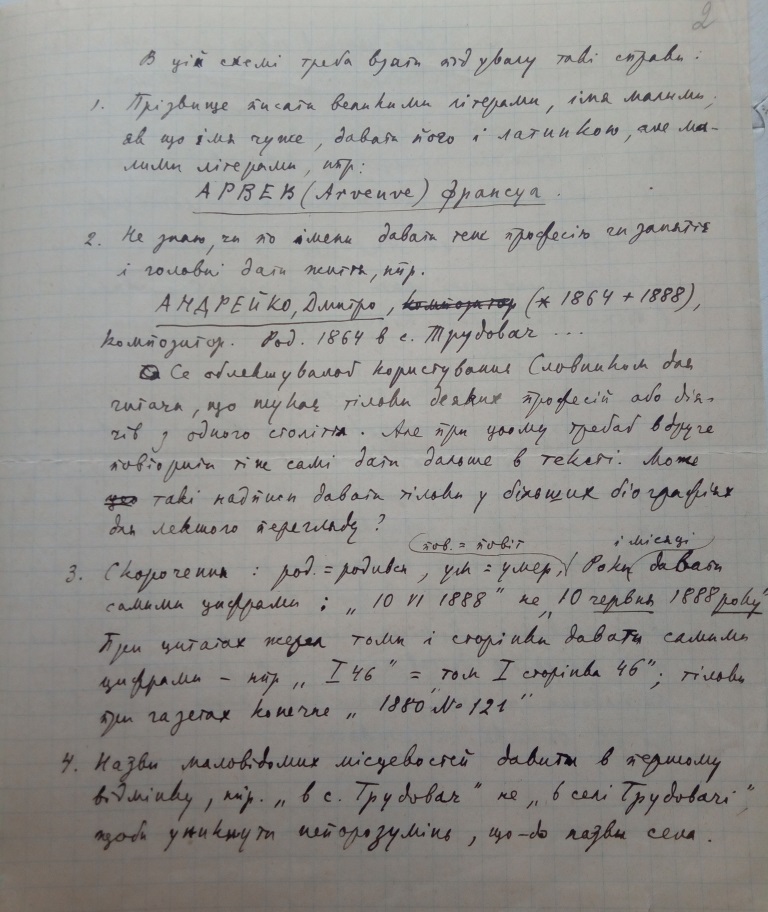 2
В цій схемі треба взяти під увагу такі справи:
1. Прізвище писати великими літерами, імя малими,
як що імя чуже, давати його і латинкою, але ма-
лими літерами, нпр:
АРВЕВ (Arveuve) Франсуа.
2. Не знаю, чи по імени давати теж професію чи заняття
і головні дати життя, нпр.
АНДРЕЙКО, Дмитро, композитор (* 1864 + 1888),
композитор. Род. 1864 в с. Трудовач ...
Се облекшувалоб користування Словником для
читача, що шукає тілови деяких професій або дія-
чів з одного століття. Але при цьому требаб вдруге
повторити ті ж самі дати дальше в тексті. Може
що такі надписи давати тілови у більших біографіях
для лекшого перегляду?
пов. = повіт і місяці
3. Скорочення: род. = родився, ум = умер, Роки давати
самими цифрами: „10 VI 1888" не „10 червня 1888 року"
При цитатах жерел томи і сторінки давати самими
цифрами – нпр „I 46" = том I сторінка 46"; тілови
при газетах конечне „1880 № 121"
4. Назви маловідомих місцевостей давати в першому
відмінку, нпр. „в с. Трудовач" не „в селі Трудовачі",
щоби уникнути непорозумінь, що-до назви села.